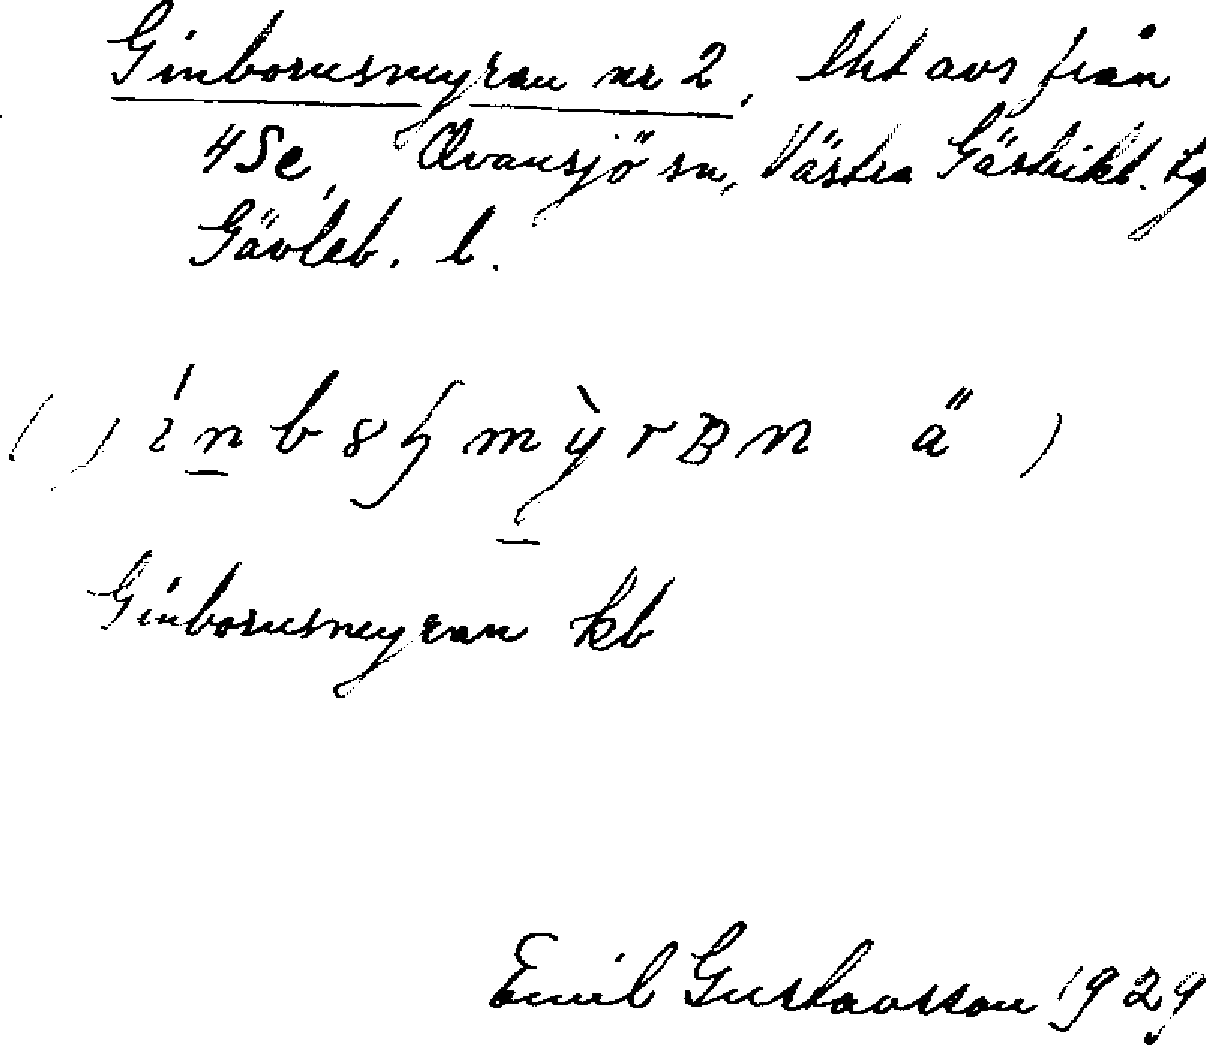 Ginborusmyran nr 2, lht avs från
4 Se, Ovansjö sn, Västra Gästrikl. tg
Gävleb. l.
ä )
Ginborusmyran kb
Emil Gustavsson 1929